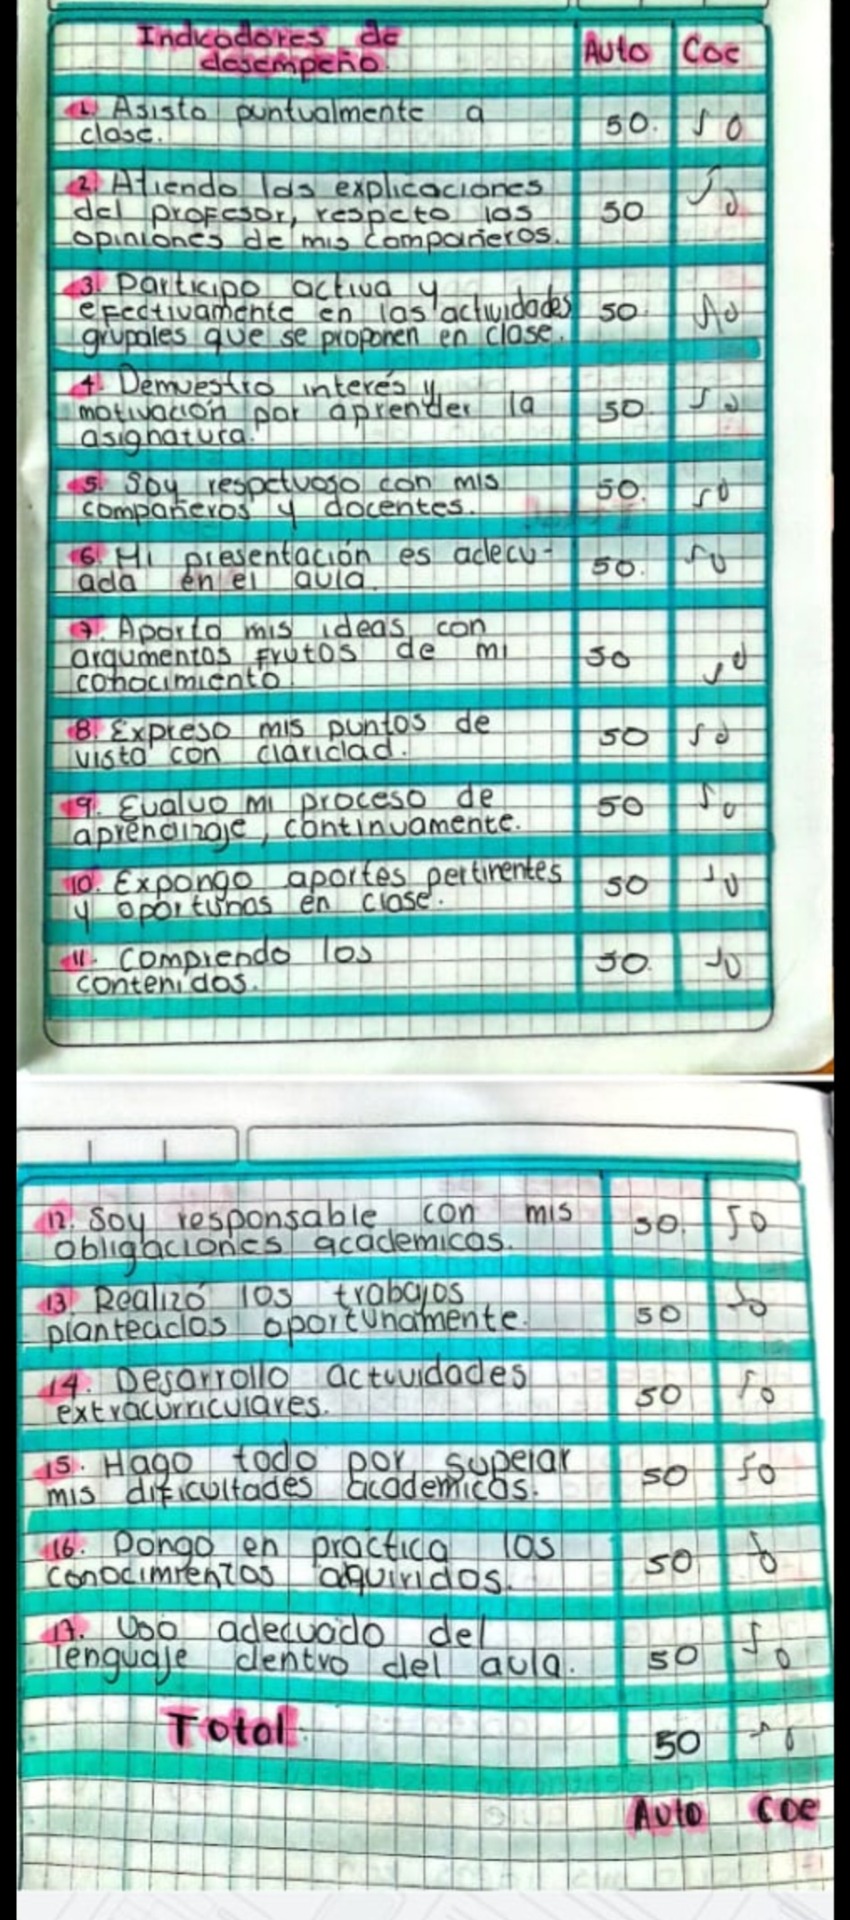 Indicadores de
desempeño.
Auto Coe
1. Asisto puntualmente a
clase. 50. 50
2. Atiendo las explicaciones
del profesor, respeto las 50 50
opiniones de mis compañeros.
3. Participo activa y
efectivamente en las actividades 50. 50
grupales que se proponen en clase.
4. Demuestro interés y
motivación por aprender la 50. 50
asignatura.
5. Soy respetuoso con mis 50. 50
compañeros y docentes.
6. Mi presentación es adecu- 50. 50
ada en el aula.
7. Aporto mis ideas con
argumentos frutos de mi 50 50
conocimiento
8. Expreso mis puntos de 50 50
vista con claridad.
9. Evaluo mi proceso de 50 50
aprendizaje, continuamente.
10. Expongo aportes pertinentes 50 50
y oportunas en clase.
11. Comprendo los 50. 50
contenidos.
12. Soy responsable con mis 50. 50
obligaciones academicas.
13. Realizó los trabajos 50 50
planteados oportunamente.
14. Desarrollo actividades 50 50
extracurriculares.
15. Hago todo por superar 50 50
mis dificultades academicas.
16. Pongo en practica los 50 50
conocimientos aquiridos.
17. Uso adecuado del
lenguaje dentro del aula. 50 50
Total: 50 50
Auto Coe